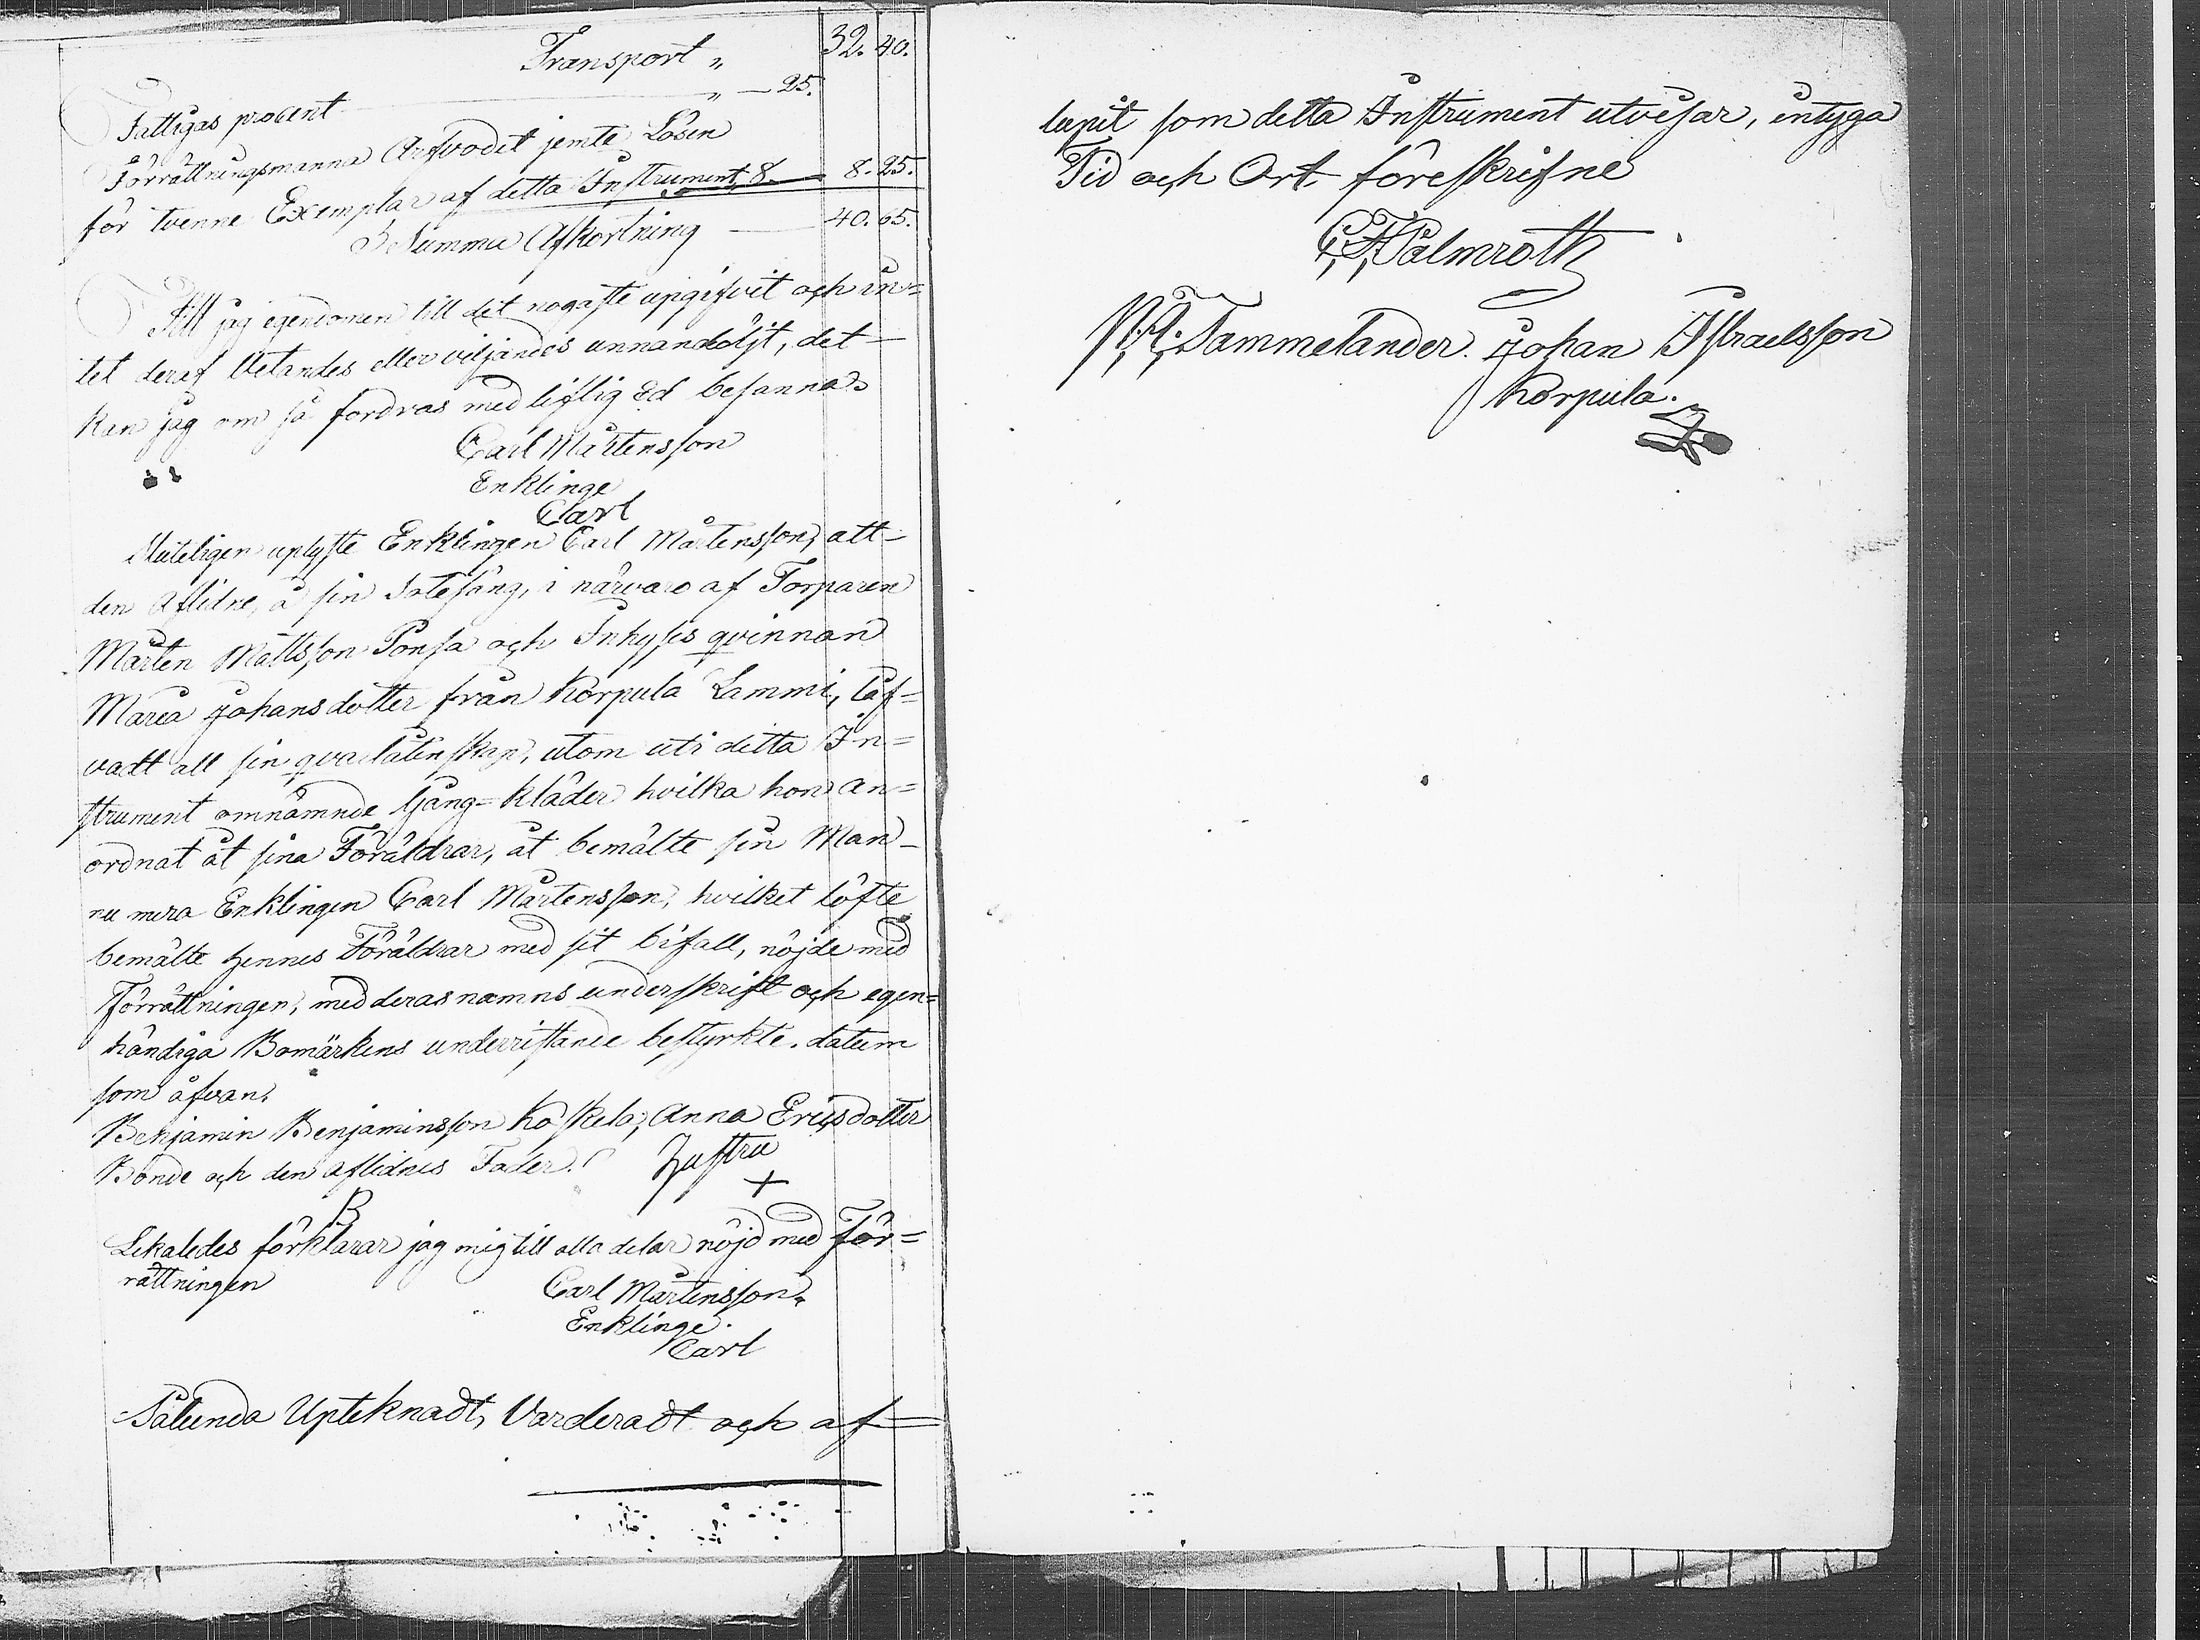 Transport „ 32. 40.
Fattigas procent „ — 25.
Förrättningsmanna Arfvodet jemte Lösen
för tvenne Exemplar af detta Instrument 8. — 8. 25.
Summa Afkortning — 40. 65.
jag egendomen till det nogaste upgifvit och in=
tet deraf Vetandes eller viljandes unnandöljt, det
kan jag om så fordras med liflig Ed besanna.
Carl Mårtensson
Enklinge
Carl
Sluteligen uplyste Enklingen Carl Mårtensson, att
den Aflidne, å sin Sotesäng, i närvaro af Torparen
Mårten Mattsson Ponsa och Inhyses qvinnan
Maria Johansdotter från Korpula Lammi, låf=
vadt all sin qvarlåtenskap, utom uti detta In=
strument omnämnde Gång=kläder hvilka hon an=
ordnat åt sina Föräldrar, åt bemälte sin Man
nu mera Enklingen Carl Mårtensson, hvilket löfte
bemälte hennes Föräldrar med sit bifall, nöjde med
Förrättningen, med deras namns underskrift och egen=
händiga Bomärkens underristande bestyrkte. datum
som åfvan.
Benjamin Benjaminsson Koskela, Anna Ericsdotter
Bonde och den aflidnes Fader. Hustru
B +
Likaledes förklarar jag mig till alla delar nöjd med För=
rättningen
Carl Mårtensson
Enklinge.
Carl
Sålunda Upteknadt, Varderadt och af=
lupit som detta Instrument utvisar, intyga
Tid och Ort föreskrifne
Palmroth
Tammelander. Johan Israelsson
Korpula.